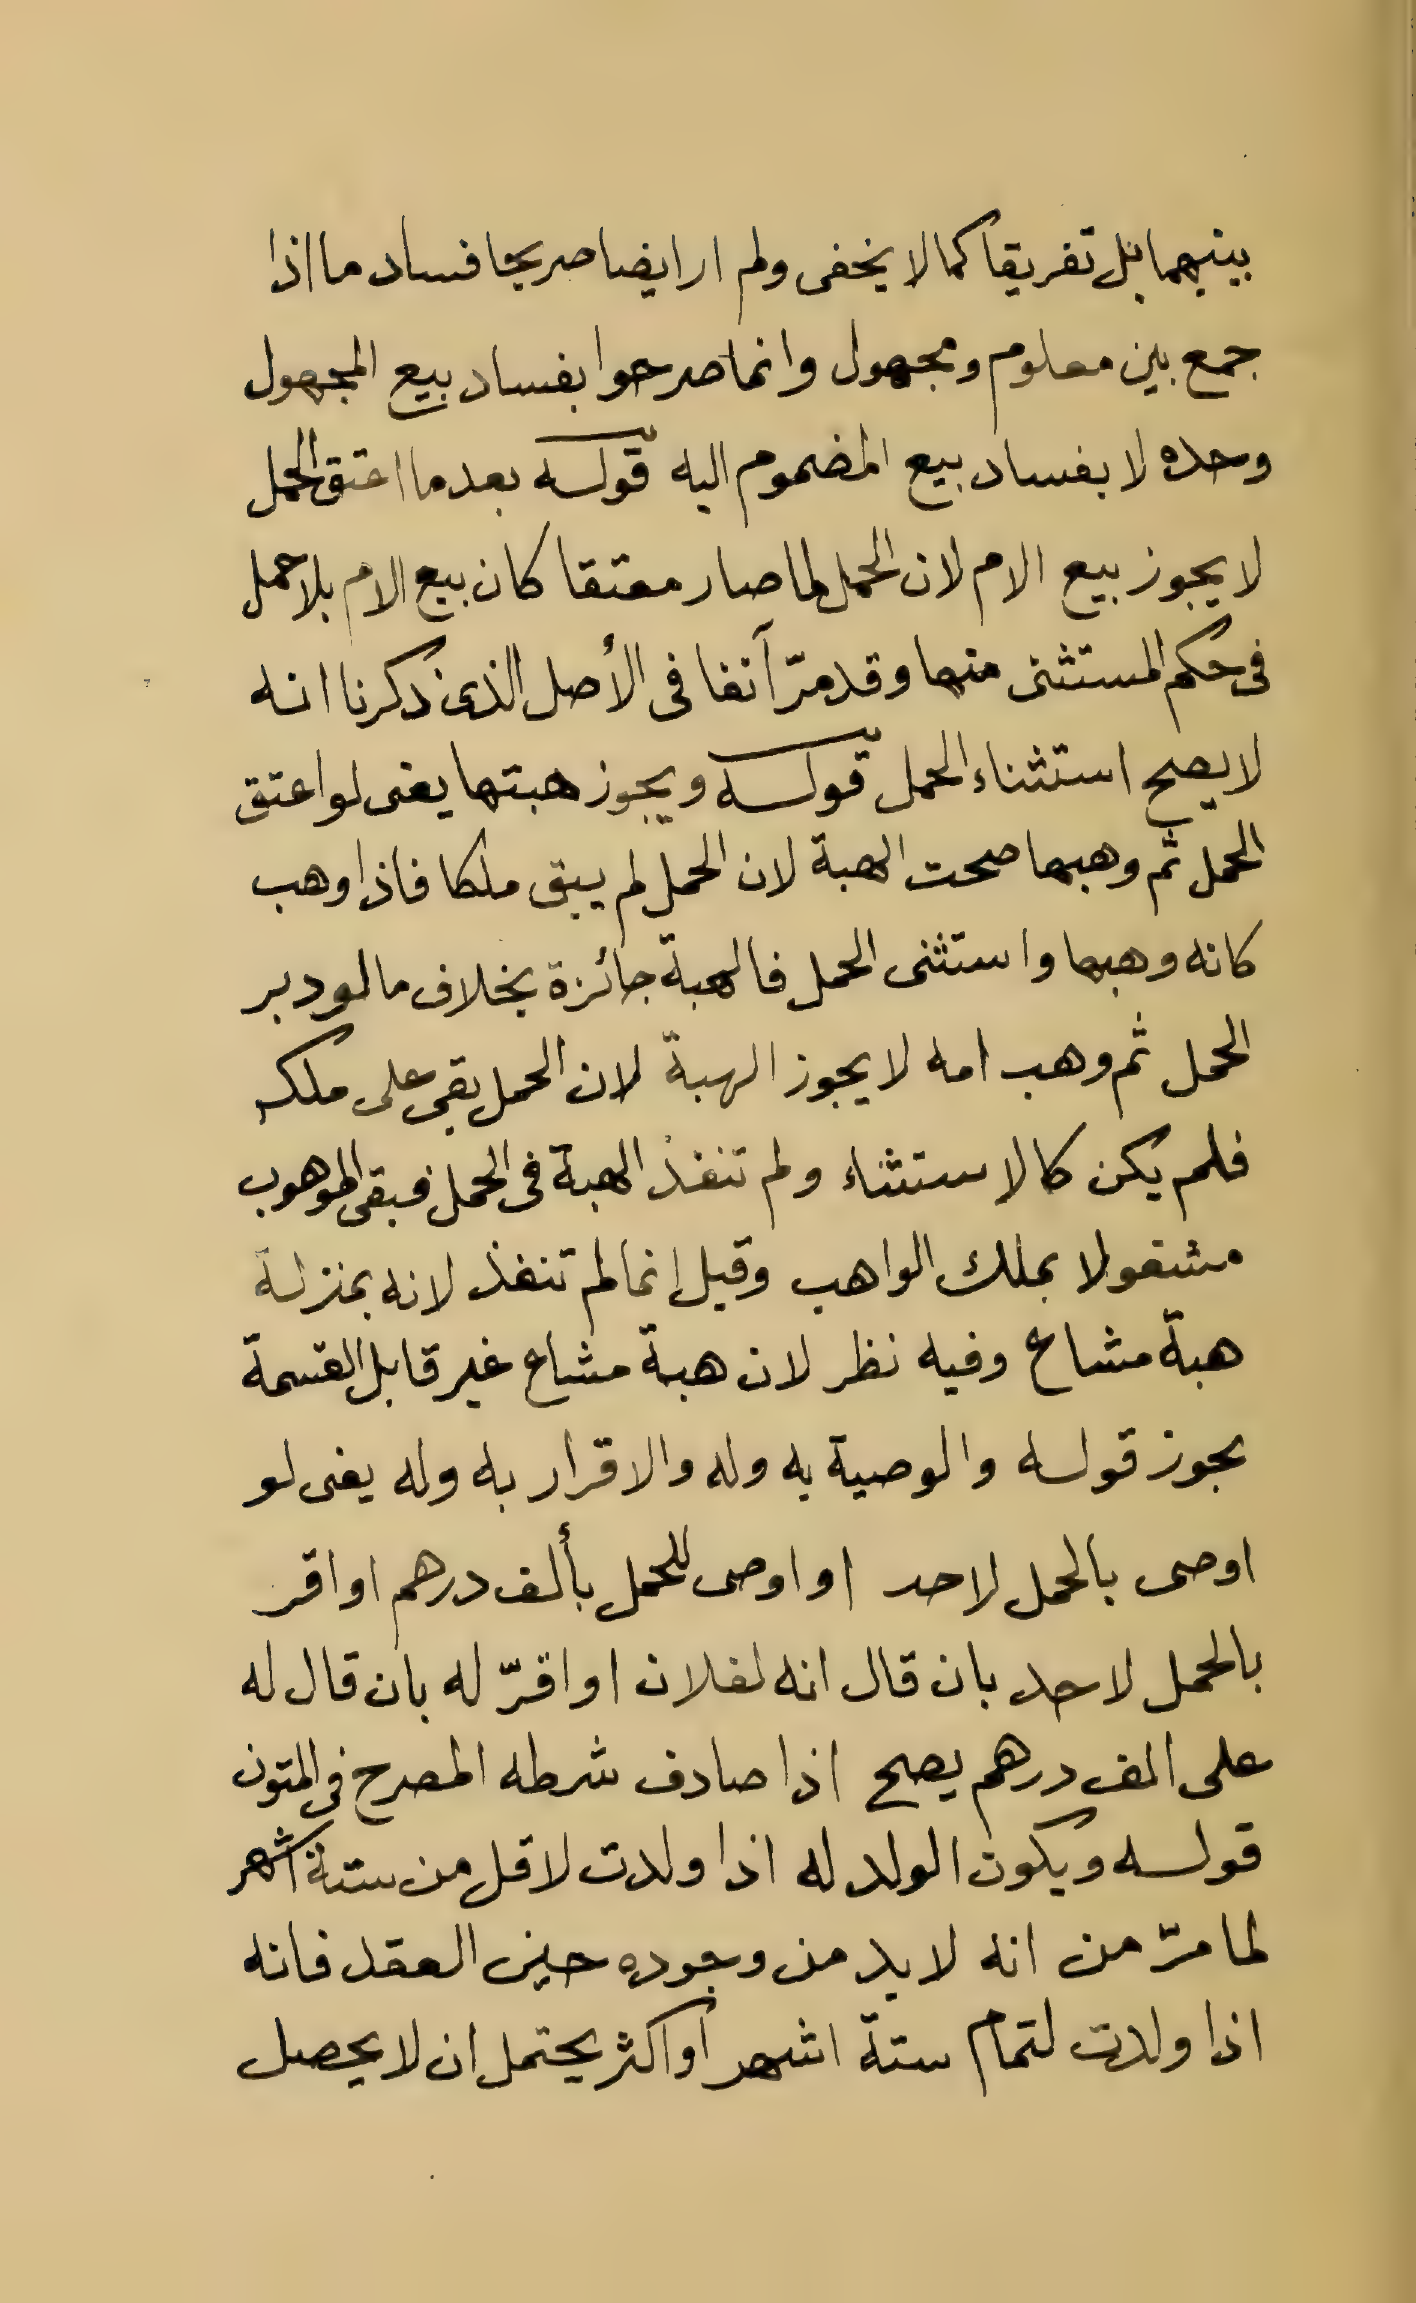 بينهما بل تفريقا كما لا يخفى ولم ار ايضا صريحا فساد ما اذا
جمع بين معلوم ومجهول وانما صرحوا بفساد بيع المجهول
وحده لا بفساد بيع المضموم اليه قوله بعد ما اعتق الحمل
لا يجوز بيع الام لان الحمل لما صار معتقا كان بيع الام بلا حمل
فى حكم المستثنى منها وقد مرّ آنفا فى الأصل الذى ذكرنا انه
لا يصح استثناء الحمل قوله ويجوز هبتها يعنى لو اعتق
الحمل ثم وهبها صحت الهبة لان الحمل لم يبق ملكا فاذا وهب
كانه وهبها واستثنى الحمل فالهبة جائزة بخلاف ما لو دبر
الحمل ثم وهب امه لا يجوز الهبة لان الحمل بقى على ملكه
فلم يكن كالاستثناء ولم تنفذ الهبة فى الحمل فبقى الموهوب
مشغولا بملك الواهب وقيل إنما لم تنفذ لانه بمنزلة
هبة مشاع وفيه نظر لان هبة مشاع غير قابل القسمة
يجوز قوله والوصية به وله والاقرار به وله يعنى لو
اوصى بالحمل لاحد او اوصى للحمل بألف درهم او اقر
بالحمل لاحد بان قال انه لفلان او اقرّ له بان قال له
على الف درهم يصح اذا صادف شرطه المصرح فى المتون
قوله ويكون الولد له اذا ولدت لاقل من ستة اشهر
لما مرّ من انه لا بد من وجوده حين العقد فانه
اذا ولدت لتمام ستة اشهر أو اكثر يحتمل ان لا يحصل